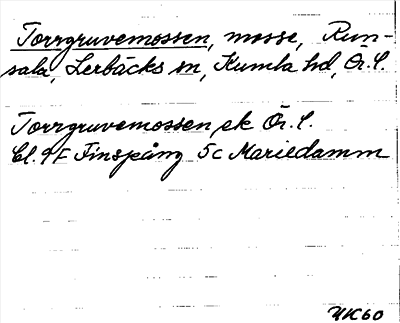 Torrgruvemossen, mosse, Run-
sala, Lerbäcks sn, Kumla hd, Ör. l.
Torrgruvemossen ek Ör. l.
Bl. 9F Finspång 5c Mariedamm
YK60